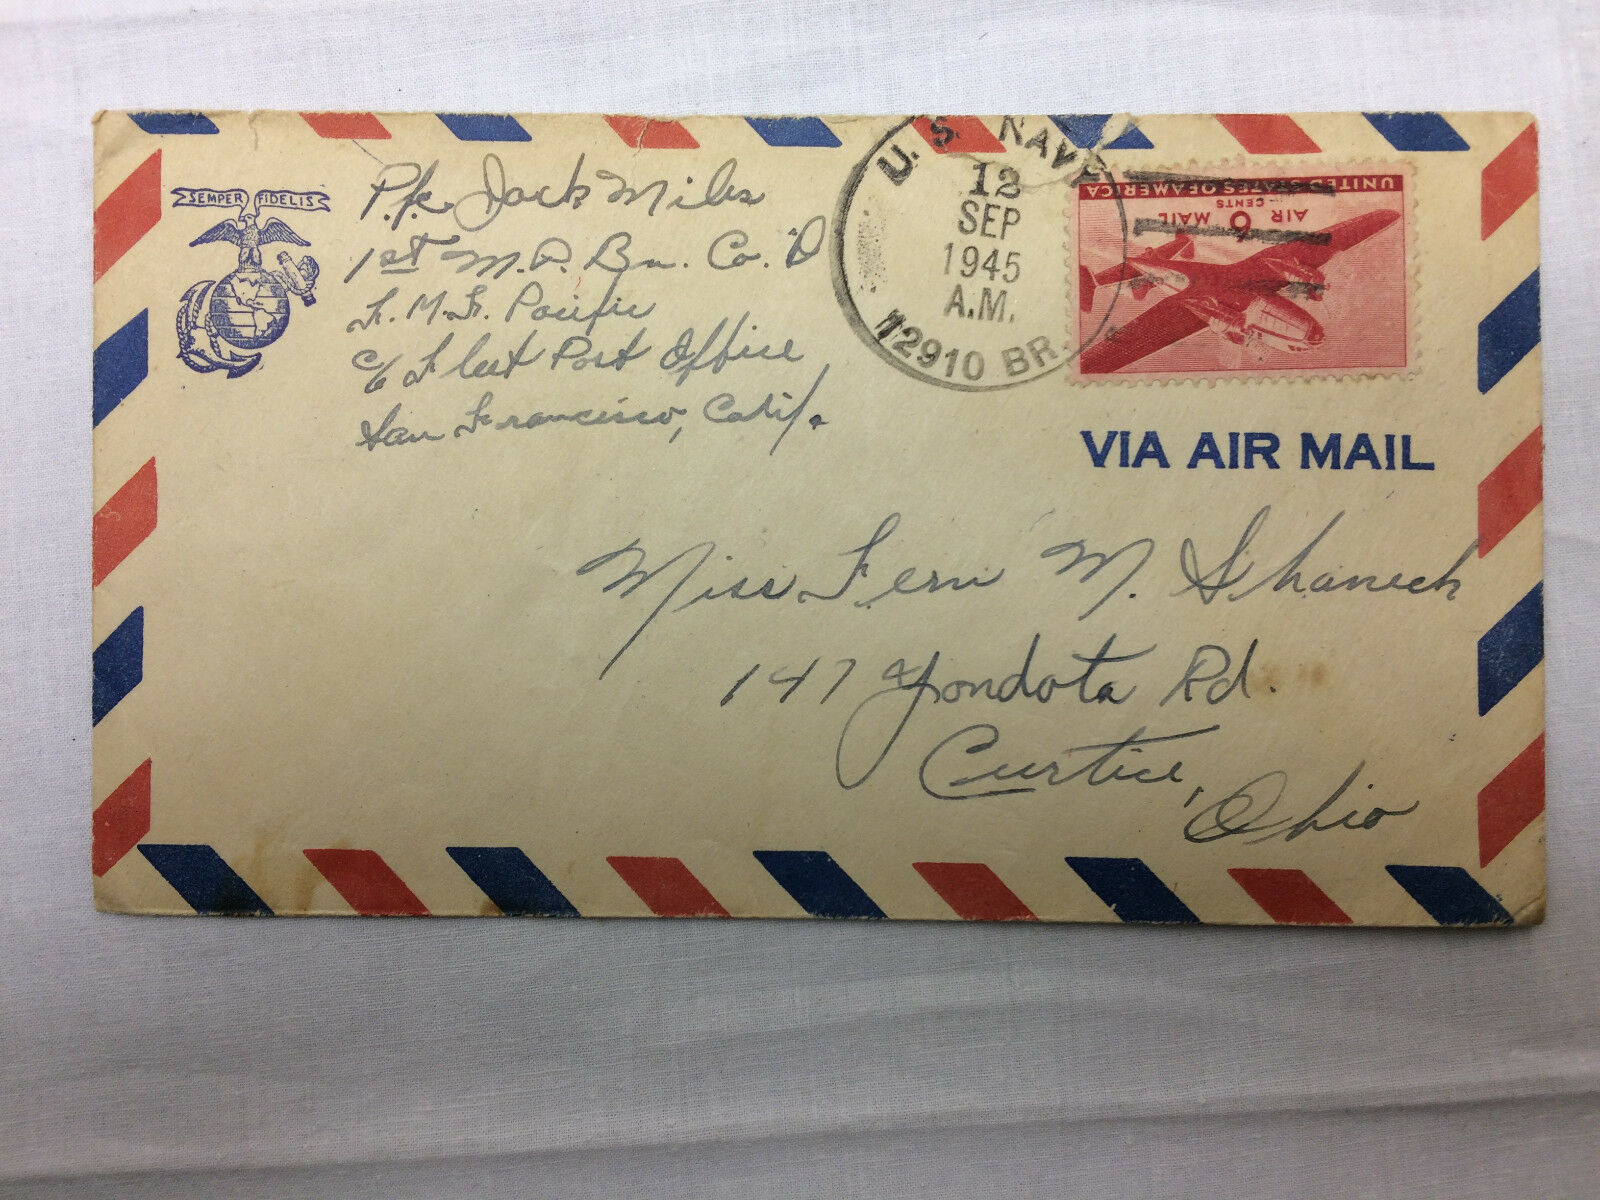 SEMPER FIDELIS
Pfc Jack Miles
1st M.P. Bn. Co. D
F.M.F. Pacific
c/o Fleet Post Office
San Francisco, Calif.
U.S. NAVY
12
SEP
1945
A.M.
12910 BR.
UNITED STATES OF AMERICA
6 CENTS
AIR MAIL
VIA AIR MAIL
Miss Fern M. Shaneck
147 Yondota Rd.
Curtice, Ohio